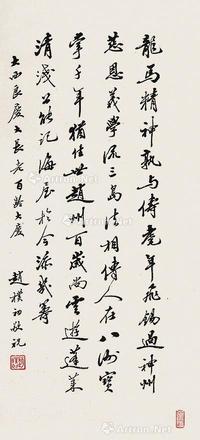 龍馬精神孰與儔耄年飛錫過神州
慈恩義學流三島法相傳人在八洲寶
掌千年猶住世趙州百歲尚雲遊蓬萊
清淺公能記海屋於今添幾籌
大西良慶大長老百齡大慶
趙樸初敬祝